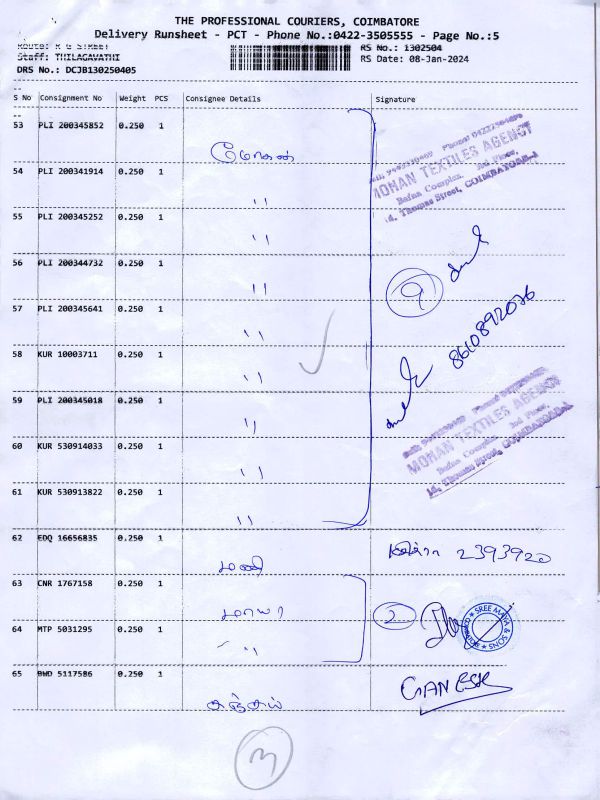 THE PROFESSIONAL COURIERS, COIMBATORE
Delivery Runsheet - PCT - Phone No.:0422-3505555 - Page No.:5
Route: R G STREET RS No.: 1302504
Staff: THILAGAVATHI RS Date: 08-Jan-2024
DRS No.: DCJB130250405
S No Consignment No Weight PCS Consignee Details Signature
53 PLI 200345852 0.250 1 மோகன்
MOHAN TEXTILES AGENCY
Bafna Complex, 3rd Floor,
14, Thomas Street, COIMBATORE-1
54 PLI 200341914 0.250 1 "
55 PLI 200345252 0.250 1 "
56 PLI 200344732 0.250 1 " 9
57 PLI 200345641 0.250 1 "
8610892076
58 KUR 10003711 0.250 1 "
59 PLI 200345018 0.250 1 "
MOHAN TEXTILES AGENCY
Bafna Complex, 3rd Floor,
14, Thomas Street, COIMBATORE-1
60 KUR 530914033 0.250 1 "
61 KUR 530913822 0.250 1 "
62 EDQ 16656835 0.250 1 மணி 2393920
63 CNR 1767158 0.250 1 மாயா 2
SREE MAYA & SONS
64 MTP 5031295 0.250 1 "
65 BWD 5117586 0.250 1 சஞ்சய் GANESH